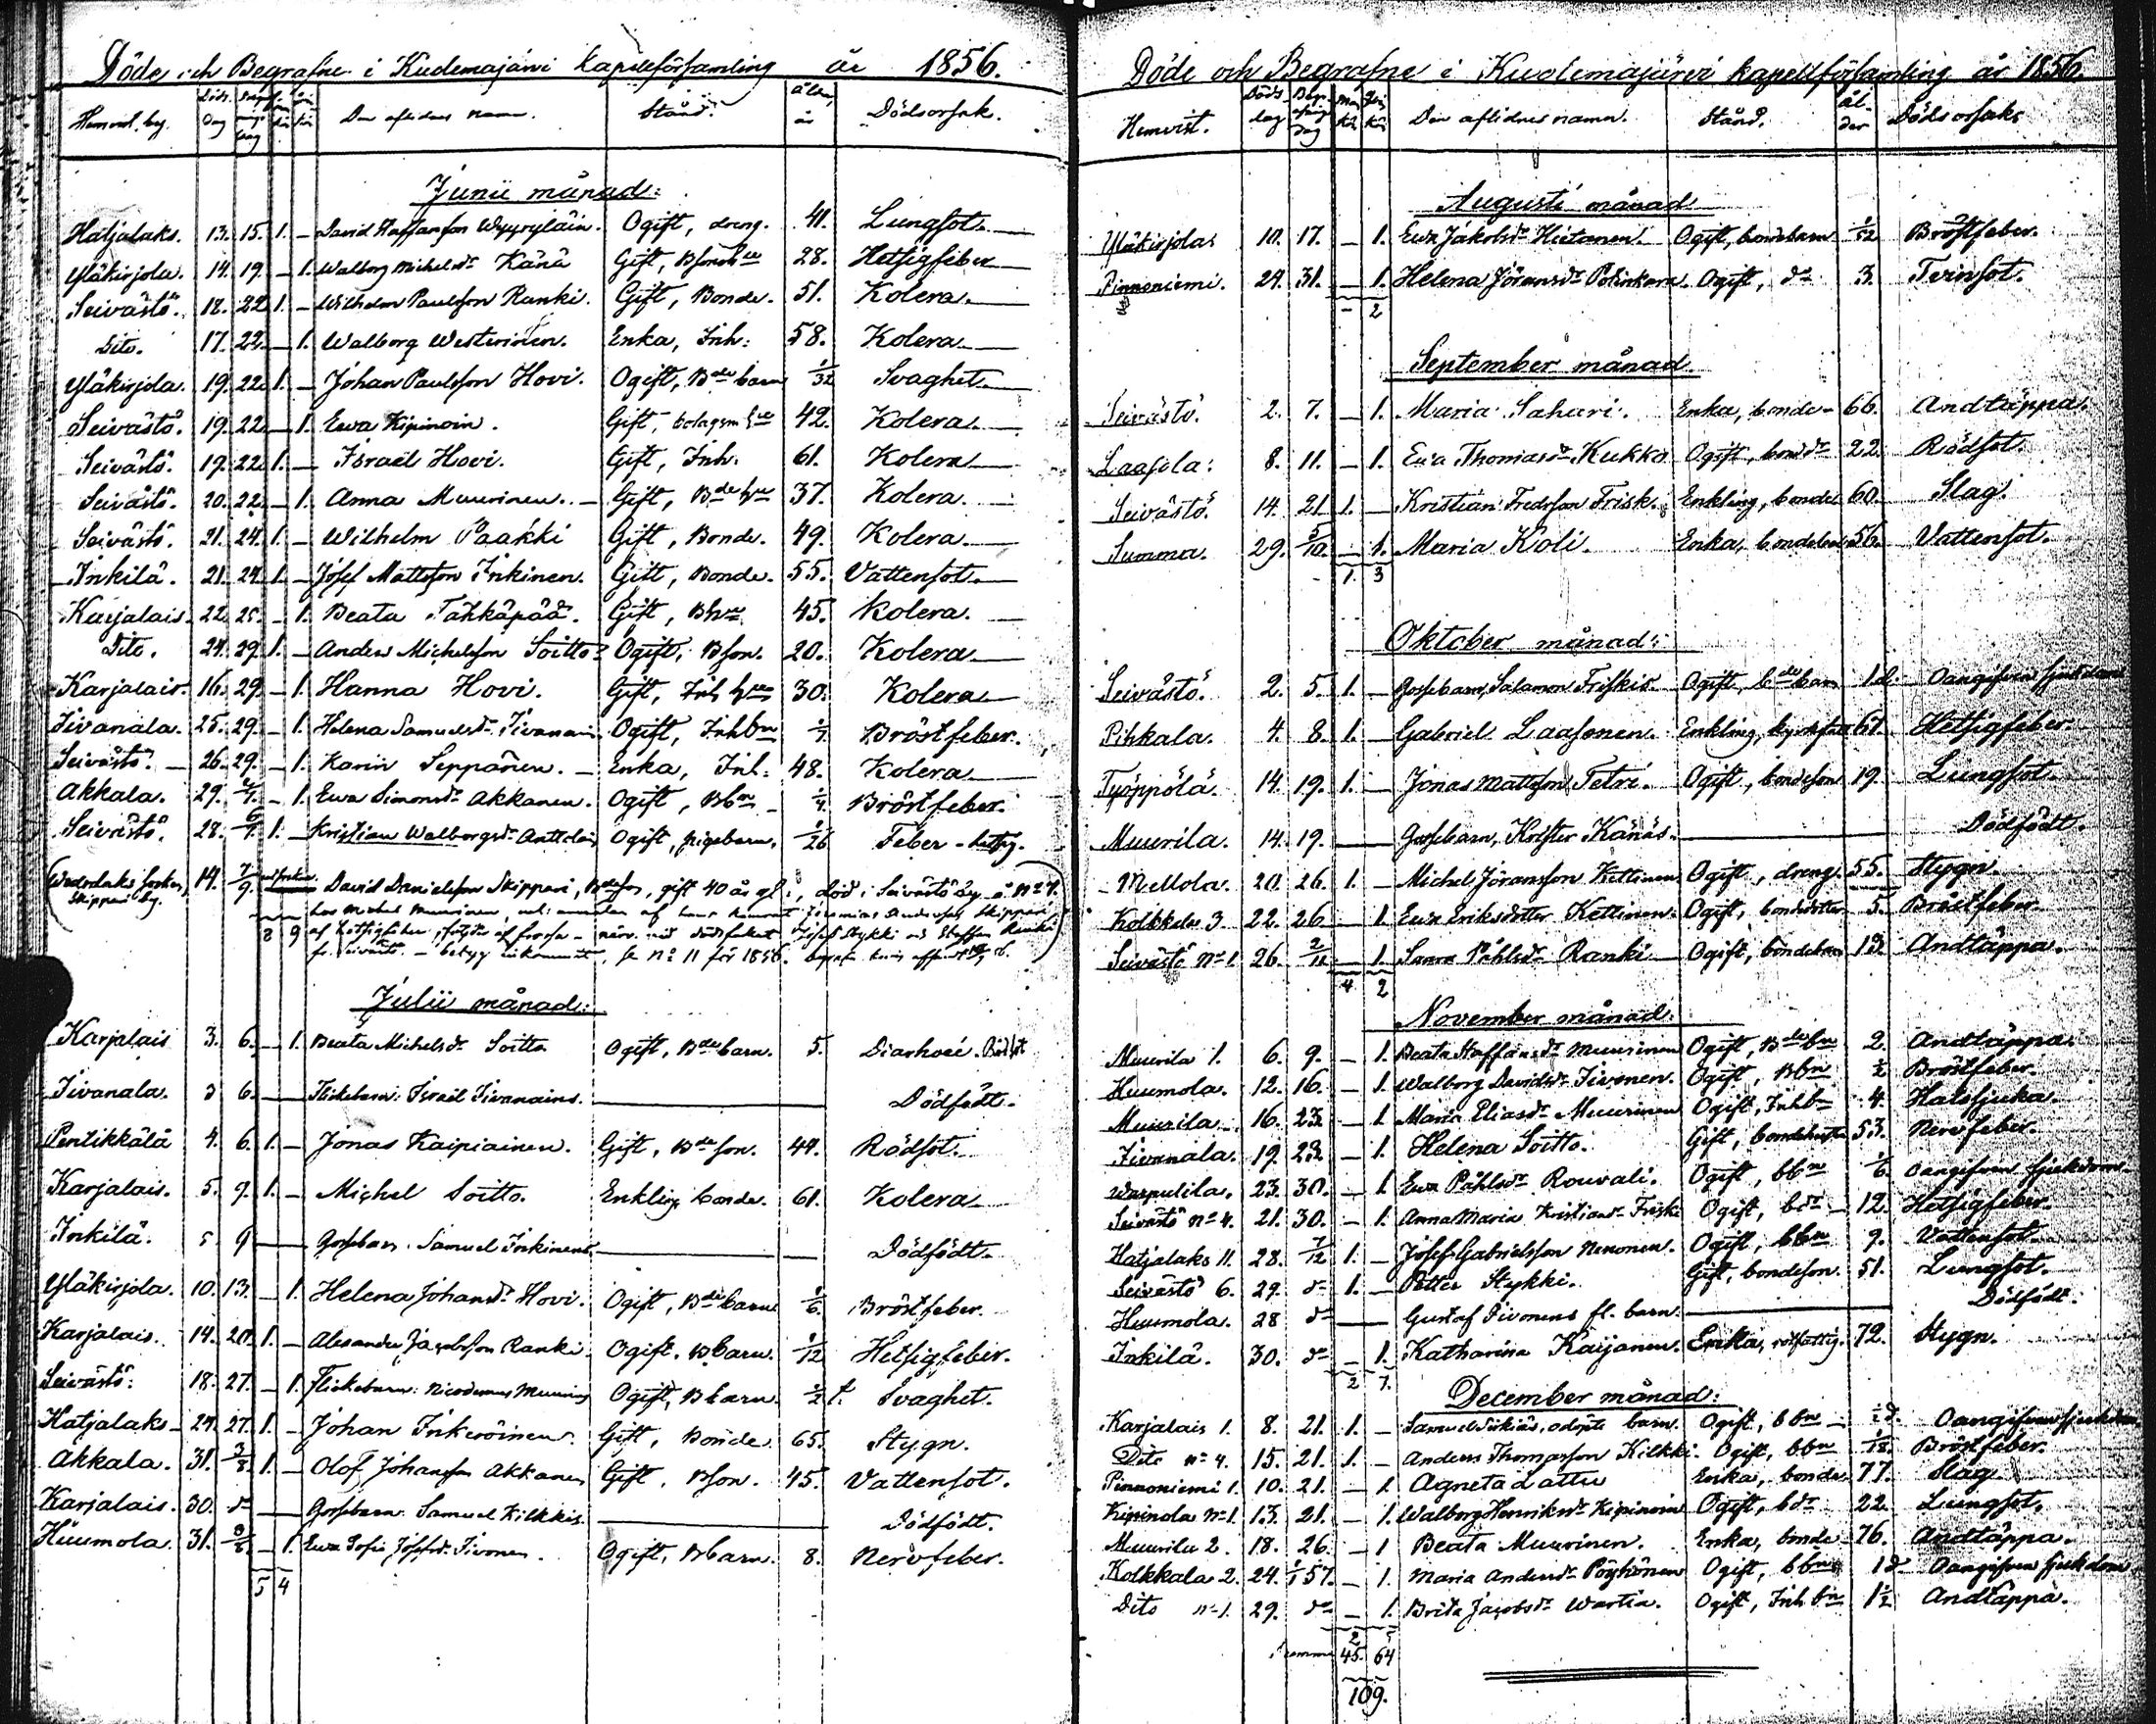 Döde och Begrafne i Kudemajärvi kapellförsamling år 1856.
Hemvist, by. Döds dag Begrafnings dag Den aflidnes namn. Stånd. Ålder, år Dödsorsak.
Junii månad:
Hatjalaks. 13. 15. 1. – David Staffansson Wyyryläin. Ogift, dreng. 41. Lungsot.
Yläkirjola. 14. 19. – 1. Walborg Michelsdr Känä Gift, 28. Hetsigfeber
Seivästö. 18. 22. 1. – Wilhelm Paulsson Ranki. Gift, Bonde. 51. Kolera.
Dito. 17. 22. – 1. Walborg Westerinen. Enka, Inh: 58. Kolera
Yläkirjola. 19. 22. 1. – Johan Paulsson Hovi. Ogift, Bde barn 1/32 Svaghet
Seivästö. 19. 22. – 1. Ewa Kipinoin. Gift, bolagsm 42. Kolera.
Seivästö. 19. 22. 1. – Israel Hovi. Gift, Inh. 61. Kolera
Seivästö. 20. 22. – 1. Anna Muurinen. – Gift, Bde hu 37. Kolera.
Seivästö. 21. 24. 1. – Wilhelm Paakki Gift, Bonde. 49. Kolera.
Inkilä. 21. 24. 1. – Josef Mattsson Inkinen. Gift, Bonde. 55. Vattensot.
Karjalais. 22. 25. – 1. Beata Tähkäpää. Gift, Bhu 45. Kolera.
Dito. 24. 29. 1. – Anders Michelsson Soitto. Ogift, Bson. 20. Kolera
Karjalais. 16. 29. – 1. Hanna Hovi. Gift, Inh hu 30. Kolera
Iivanala. 25. 29. – 1. Helena Samuelsdr Iivanain Ogift, Inhbn Bröstfeber.
Seivästö. – 26. 29. – 1. Karin Seppänen. – Enka, Inh: 48. Kolera
Akkala. 29. – 1. Ewa Simonsdr Akkanen. Ogift, Bbn – 1/4 Bröstfeber.
Seivästö. 28. 6/7. 1. – Kristian Walborgsdr Ogift, pigebarn. 1/26 Feber – hetsig.
Skippari by. 14. 7/9. David Danielsson Skippari, gift 40 år gl:, död i Seivästö by å No 4.
hos Michel Muurinen, af hans kamrat Jeremias Andersson Skippari
8 9 af hetsigfeber, Josef Stykki och Staffan Ranki
fr. Seivästö. – betyg inkommit, se No 11 för 1856.
Julii månad:
Karjalais 3. 6. – 1. Beata Michelsdr Soitto Ogift, Bde barn. 5. Diarhoeé. Rödsot
Iivanala. 3 6. — Flickebarn: Israel Iivanains. Dödfödt.
Pentikkälä 4. 6. 1. – Jonas Kaipiainen. Gift, Bde son. 44. Rödsot.
Karjalais. 5. 9. 1. – Michel Soitto. Enkling bonde. 61. Kolera
Inkilä. 5. 9 — Gossebarn. Samuel Inkinens. Dödfödt.
Yläkirjola. 10. 13. – 1. Helena Johansdr Hovi. Ogift, Bde barn 1/6 Bröstfeber.
Karjalais. 14. 20. 1. – Alexander Jacobsson Ranki. Ogift. Bbarn. 1/12 Hetsigfeber.
Seivästö. 18. 27. – 1. Flickebarn: Nicodemus Ogift, Bbarn. 1/2 t. Svaghet.
Hatjalaks – 24. 27. 1. – Johan Inkeröinen. Gift, Bonde. 65. Stygn.
Akkala. 31. 3/8. 1. – Olof Johansson Akkanen Gift, Bson. 45. Vattensot.
Karjalais. 30. do — Gossebarn. Samuel Kilkkis. Dödfödt.
Huumola. 31. – 1. Ewa Sofia Josefsdr Iivonen. Ogift, Bbarn. 8. Nervfeber.
5 4
Döde och Begrafne i Kuolemajärvi kapellförsamling år 1856.
Hemvist. Döds dag Begrafnings dag Man kön Qvin kön Den aflidnes namn. Stånd. Ålder Dödsorsak
Augusti månad
Yläkirjola. 10. 17. – 1. Ewa Jakobsdr Hietanen. Ogift, bondbarn 1/52 Bröstfeber.
Pinnoniemi. 24. 31. – 1. Helena Jöransdr Ogift, do 3. Tvinsot.
– 2
September månad
Seivästö. 2. 7. – 1. Maria Sahari. Enka, bonde – 66. Andtäppa.
Laasola. 8. 11. – 1. Ewa Thomasdr Kukko Ogift, bondr 22. Rödsot.
Seivästö. 14. 21. 1. – Kristian Fredrsson Frisk. Enkling, bonde 60. Slag.
Summa. 29. 5/10. – 1. Maria Koli. Enka, 56. Vattensot.
1. 3
Oktober månad:
Seivästö. 2. 5. 1. – Gossebarn, Salamon Friskis Ogift, bde barn 1d. Oangifven sjukdom
Pihkala. 4. 8. 1. – Gabriel Laasonen. Enkling, 67. Hetsigfeber.
Työppölä. 14. 19. 1. – Jonas Mattsson Tetri. Ogift, bondeson 19. Lungsot.
Muurila. 14. 19. — Gossebarn, Krister Känäs. Dödfödt.
Mellola. 20. 26. 1. – Michel Jöransson Kettinen Ogift, dreng. 55. Stygn.
Kolkkala 3 22. 26. – 1. Ewa Eriksdotter Kettinen. Ogift, bondedotter 5. Bröstfeber.
Seivästö No 1 26. – 1. Sanna Påhlsdr Ranki Ogift, bondebarn 13. Andtäppa.
4 2
November månad.
Muurila 1. 6. 9. – 1. Beata Staffansdr Muurinen Ogift, Bde bn 2. Andtäppa.
Huumola. 12. 16. – 1. Walborg Davidsdr Iivonen. Ogift, Bbn 1/2 Bröstfeber.
Muurila. 16. 23. – 1. Maria Eliasdr Muurinen Ogift, Inhbn 4. Halssjuka.
Iivanala. 19. 23. – 1. Helena Soitto. Gift, bondehustru 53. Nervfeber.
Warpulila. 23. 30. – 1. Ewa Påhlsdr Rouvali. Ogift, bbn 1/6. Oangifven sjukdom.
Seivästö No 4. 21. 30. – 1. Anna Maria Kristiansdr Frisk Ogift, bdr – 12. Hetsigfeber.
Hatjalaks 11. 28. 7/12. 1. – Josef Gabrielsson Nenonen. Ogift, bbn 9. Vattensot.
Seivästö 6. 29. do 1. – Petter Stykki. Gift, bondeson. 51. Lungsot.
Huumola. 28 do — Gustaf Iivonens fl. barn. Dödfödt.
Inkilä. 30. do – 1. Katharina Kaijanen. Enka, rotfattig. 72. Stygn.
2 7.
December månad:
Karjalais 1. 8. 21. 1. – Samuel odöpte barn. Ogift, bbn – 1/2 d. Oangifven sjukdom
Dito No 4. 15. 21. 1. – Anders Thomasson Kilkki. Ogift, bbn Bröstfeber.
Pinnoniemi 1. 10. 21. – 1. Agneta Lattu Enka, bonde 77. Slag
Kipinola No 1. 13. 21. – 1. Walborg Henriksdr Kipinoin Ogift, bdr 22. Lungsot.
Muurila 2. 18. 26. – 1 Beata Muurinen. Enka, bonde 76. Andtäppa.
Kolkkala 2. 24. 1/1 57. – 1. Maria Andersdr Pöyhönen Ogift, bbn 1d. Oangifven sjukdom
Dito No 1. 29. do – 1. Brita Jacobsdr Wartia. Ogift, Inh bn 1 1/2 Andtäppa.
2 5
Summa 45. 64
109.